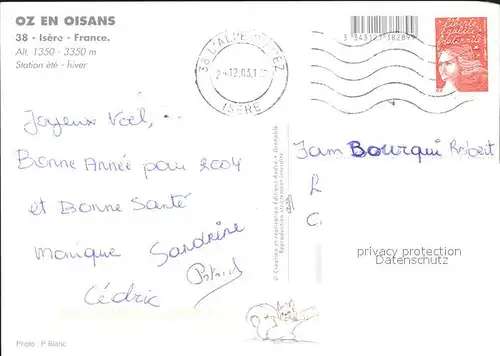 OZ EN OISANS
38 - Isère - France.
Alt. 1350 - 3350 m
Station été - hiver
3 343121 382899
liberté
égalité
fraternité
ISERE
Joyeux Noël,
Bonne Année pour 2004
et Bonne Santé
Monique Sandrine
Cédric Patrick
Fam Bourqui Robert
L
C
© Création et réalisation Éditions André - Grenoble
Reproduction strictement interdite
privacy protection
Datenschutz
Photo : P Blanc